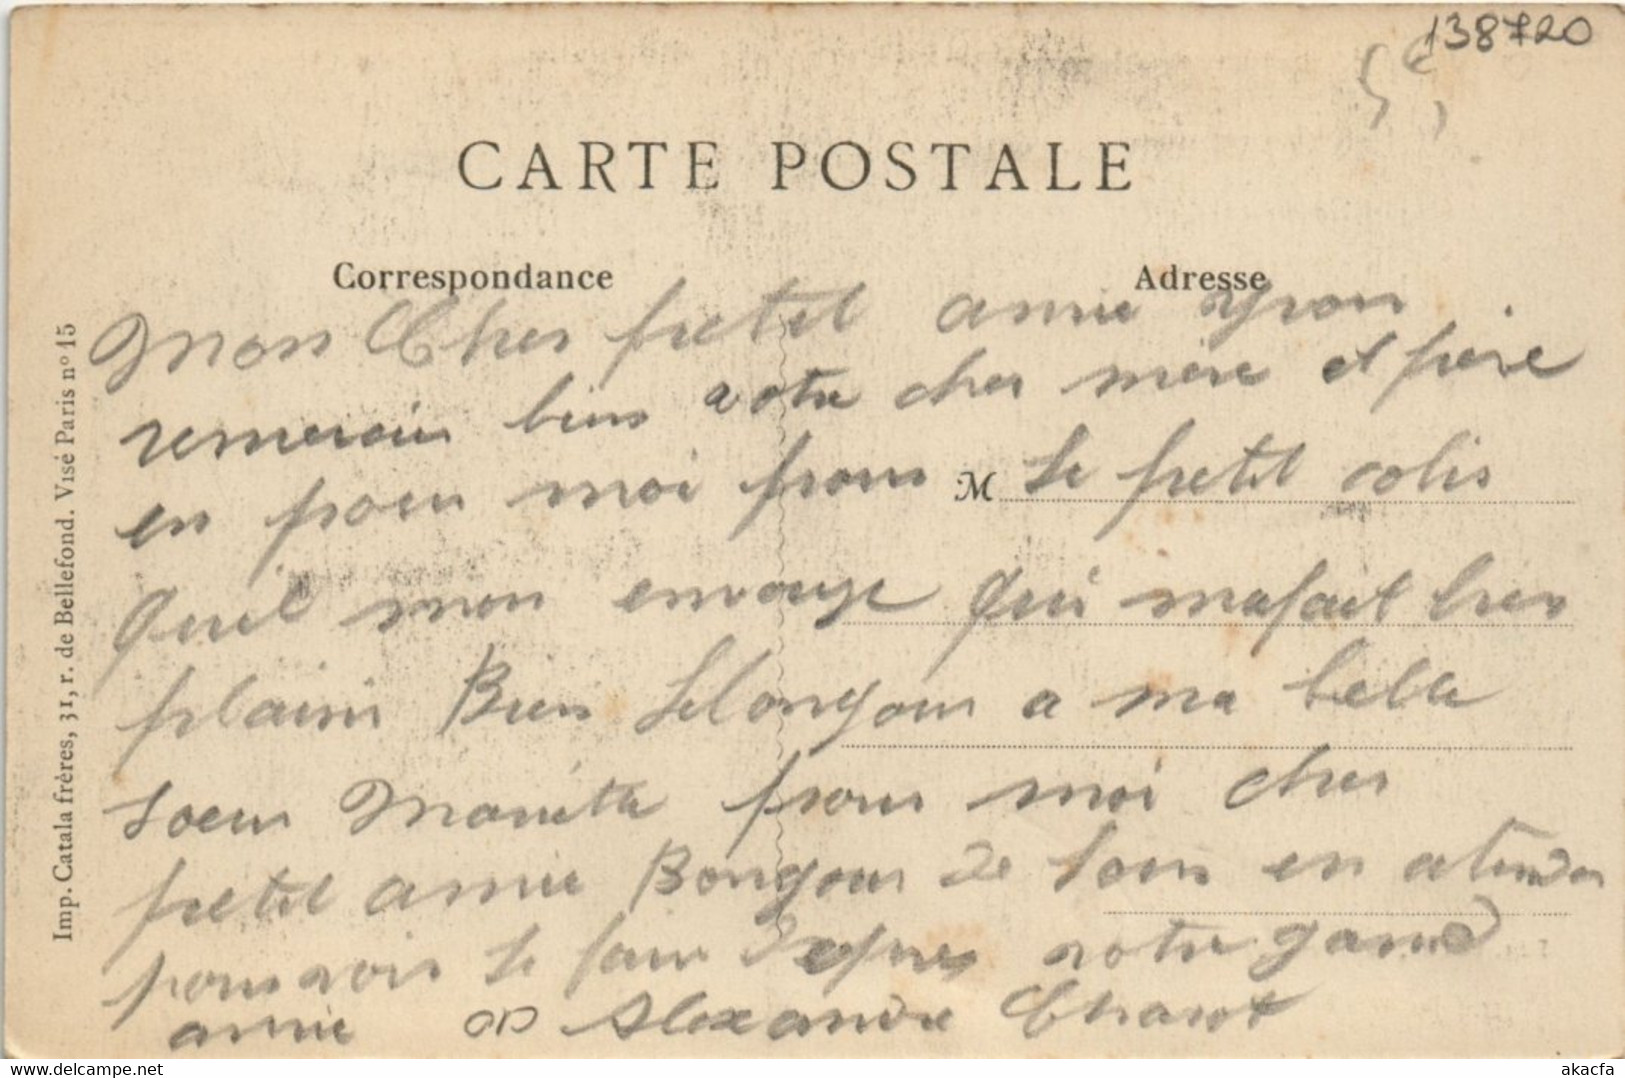 138720
CARTE POSTALE
Correspondance
Adresse
Mon Cher petit amie
remercier bien votre cher mère et père
en pour moi pour M le petit colis
quil mon envoyé qui mafait tres
plaisir Bien Le Bonjour a ma belle
soeur pour moi cher
petit amie Bongour de loin en atendan
pouvoir le faire de pres votre gamd
amie Alexandre
Imp. Catala frères, 31, r. de Bellefond. Visé Paris nº 15
delcampe.net
akacfa